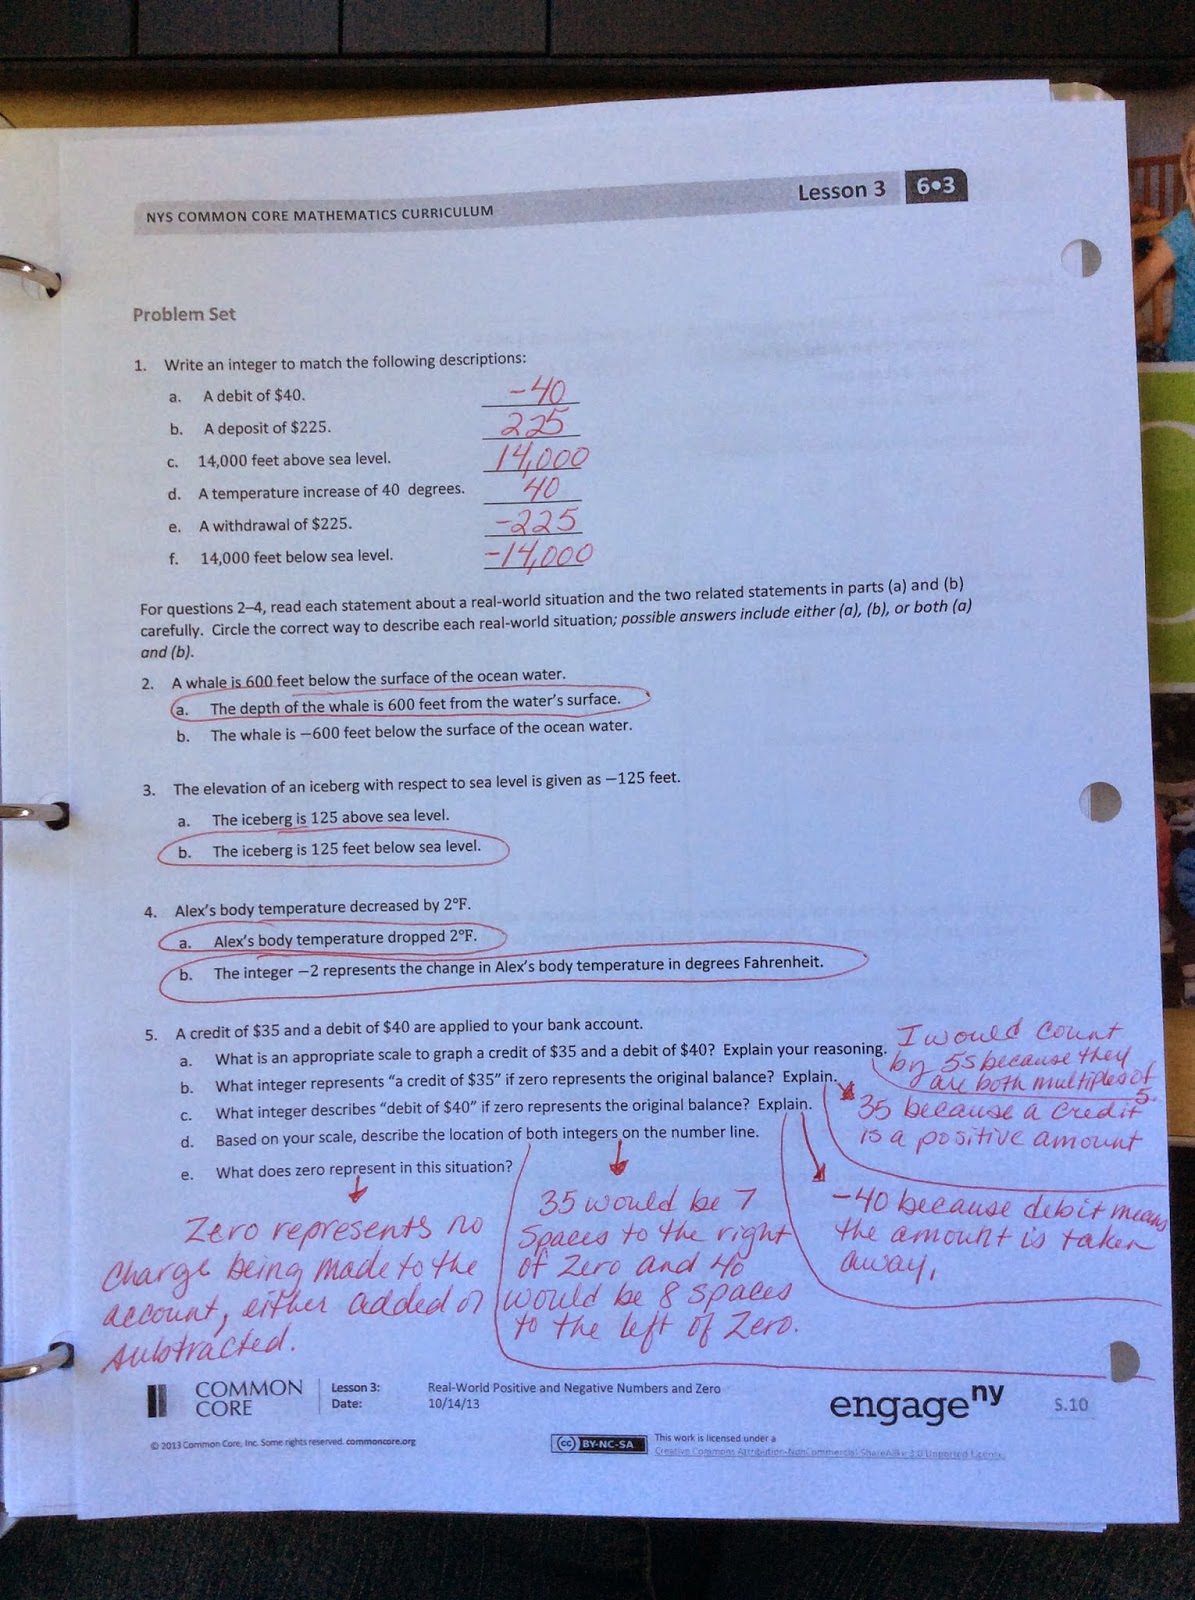 NYS COMMON CORE MATHEMATICS CURRICULUM
Lesson 3
6•3
Problem Set
1. Write an integer to match the following descriptions:
a. A debit of $40. -40
b. A deposit of $225. 225
c. 14,000 feet above sea level. 14,000
d. A temperature increase of 40 degrees. 40
e. A withdrawal of $225. -225
f. 14,000 feet below sea level. -14,000
For questions 2–4, read each statement about a real-world situation and the two related statements in parts (a) and (b)
carefully. Circle the correct way to describe each real-world situation; possible answers include either (a), (b), or both (a)
and (b).
2. A whale is 600 feet below the surface of the ocean water.
a. The depth of the whale is 600 feet from the water's surface.
b. The whale is −600 feet below the surface of the ocean water.
3. The elevation of an iceberg with respect to sea level is given as −125 feet.
a. The iceberg is 125 above sea level.
b. The iceberg is 125 feet below sea level.
4. Alex's body temperature decreased by 2°F.
a. Alex's body temperature dropped 2°F.
b. The integer −2 represents the change in Alex's body temperature in degrees Fahrenheit.
5. A credit of $35 and a debit of $40 are applied to your bank account.
a. What is an appropriate scale to graph a credit of $35 and a debit of $40? Explain your reasoning.
b. What integer represents "a credit of $35" if zero represents the original balance? Explain.
c. What integer describes "debit of $40" if zero represents the original balance? Explain.
d. Based on your scale, describe the location of both integers on the number line.
e. What does zero represent in this situation?
I would count
by 5s because they
are both multiples of
5.
35 because a credit
is a positive amount
-40 because debit means
the amount is taken
away.
35 would be 7
spaces to the right
of zero and 40
would be 8 spaces
to the left of zero.
Zero represents no
charge being made to the
account, either added or
subtracted.
COMMON
CORE
Lesson 3:
Date:
Real-World Positive and Negative Numbers and Zero
10/14/13
engage ny
S.10
© 2013 Common Core, Inc. Some rights reserved. commoncore.org
cc BY-NC-SA
This work is licensed under a
Creative Commons Attribution-NonCommercial-ShareAlike 3.0 Unported License.